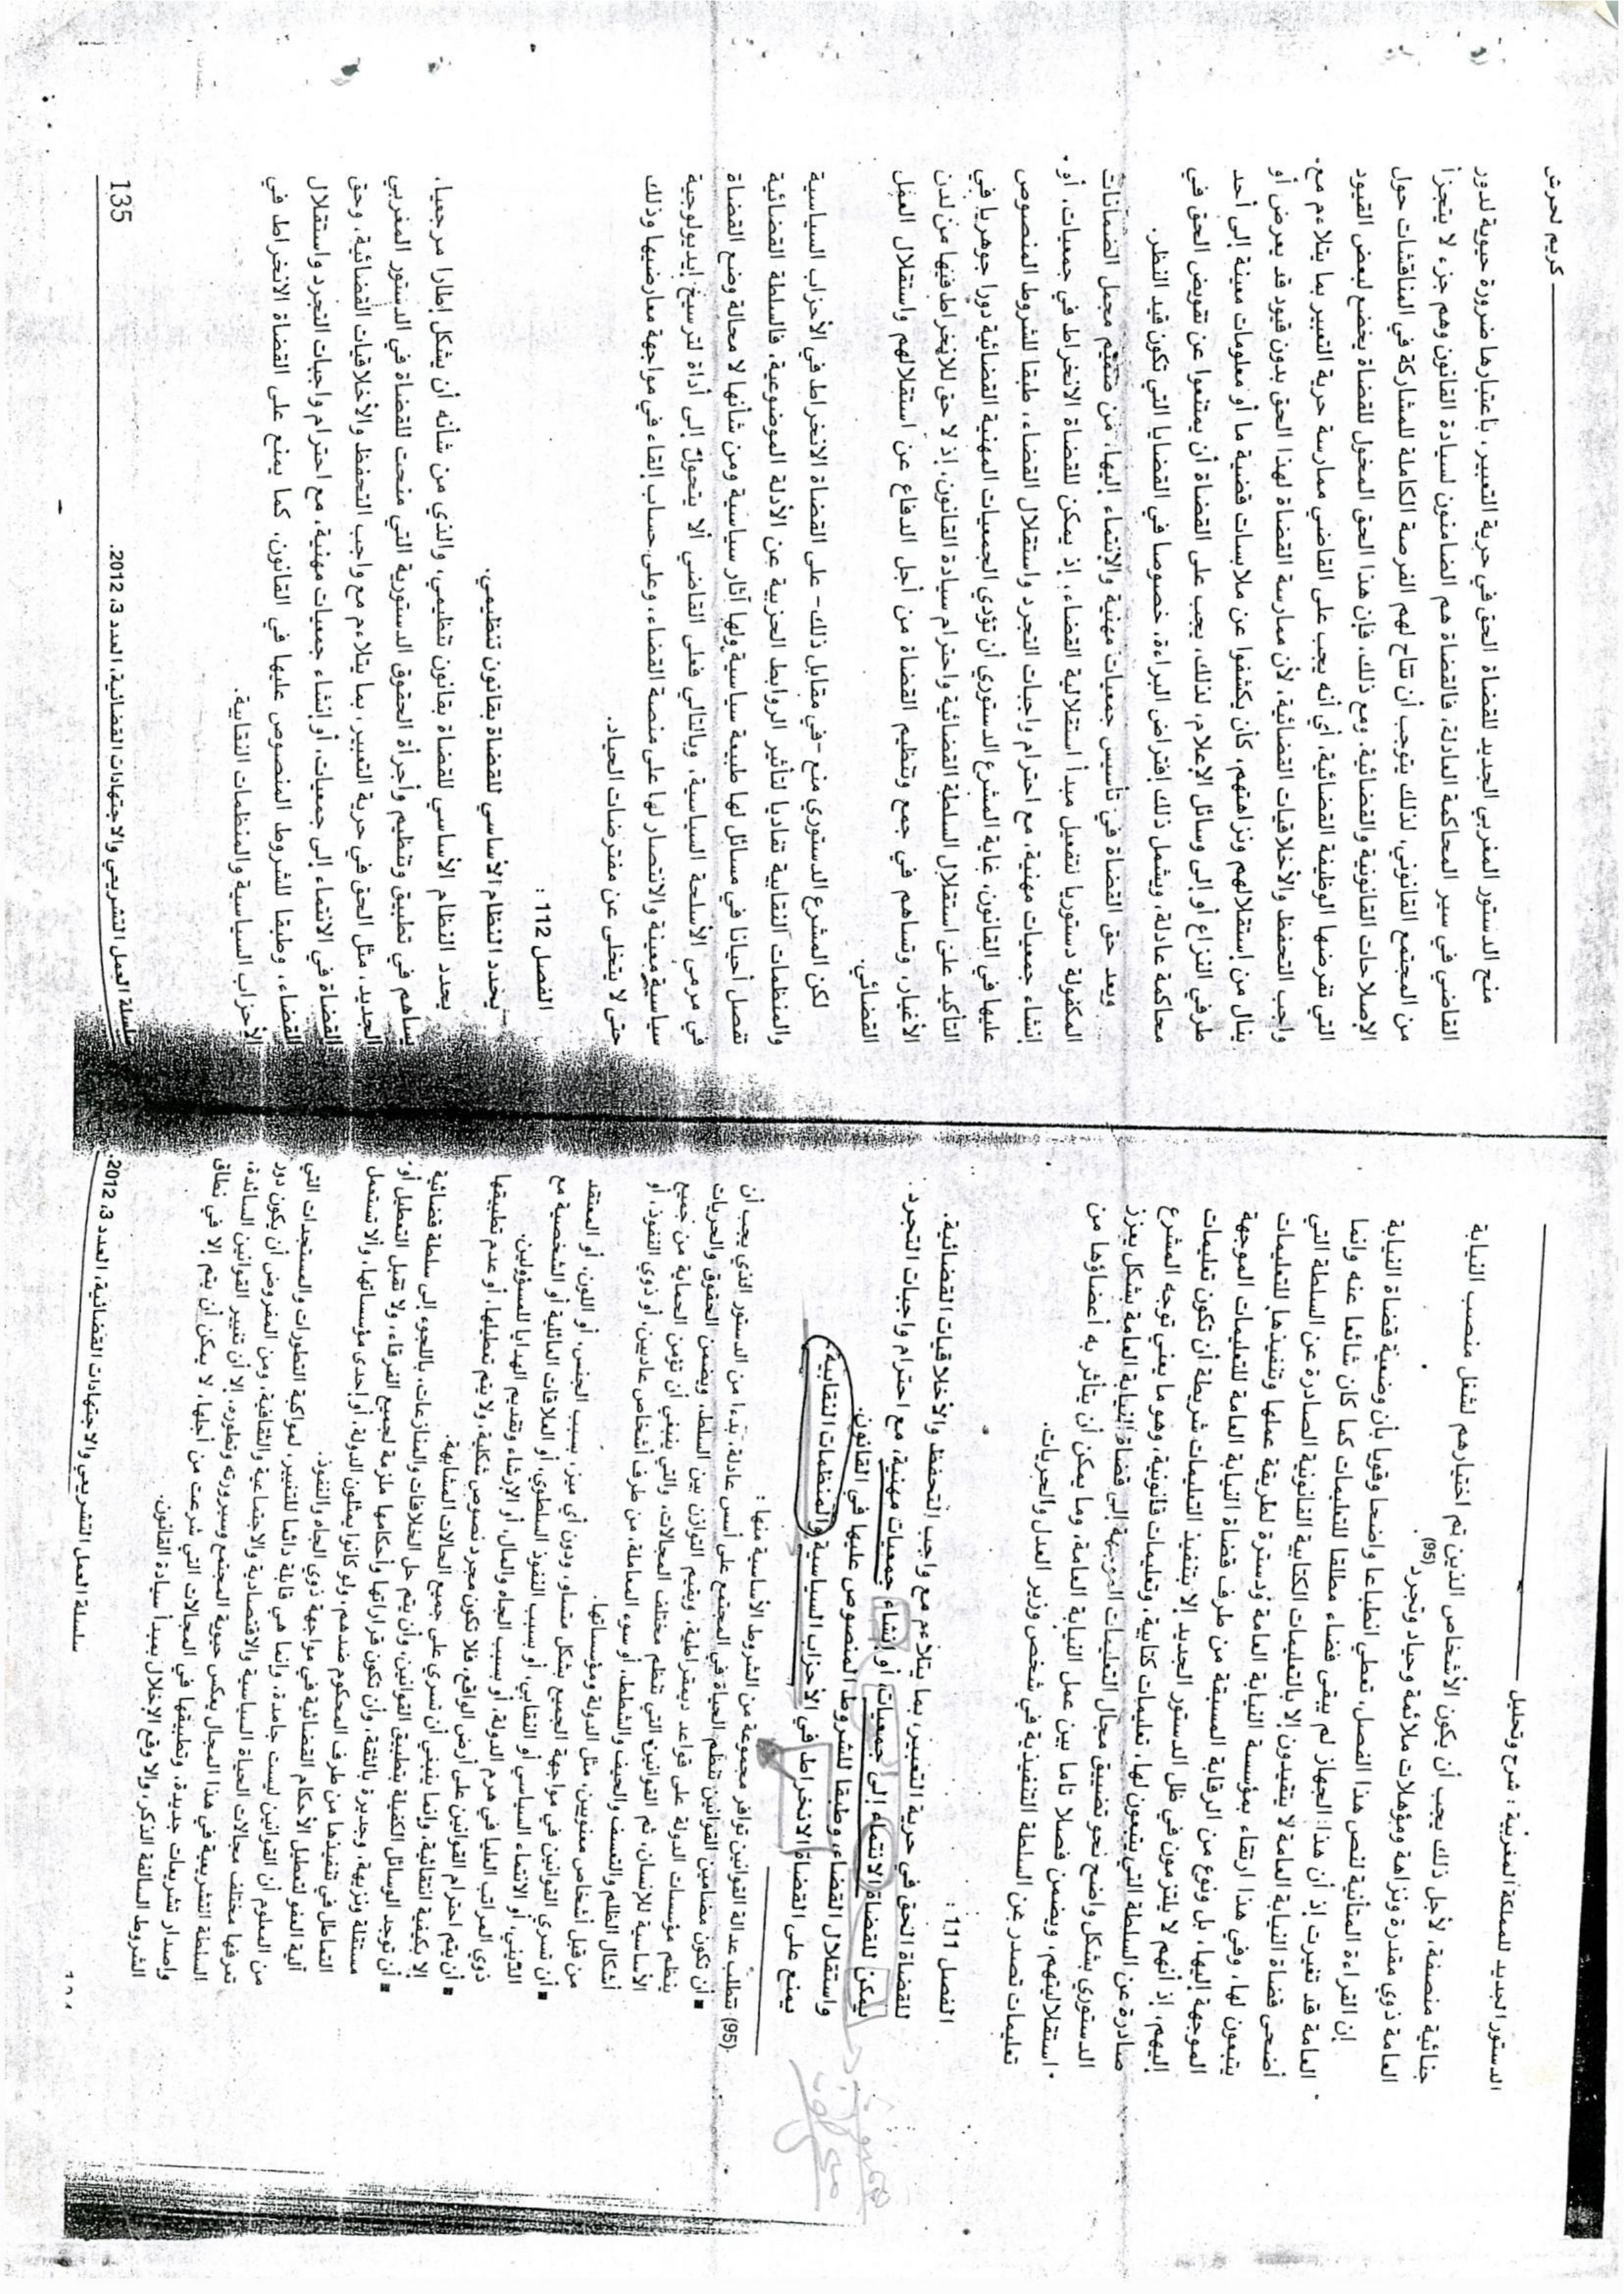 الدستور الجديد للمملكة المغربية : شرح وتحليل
جنائية منصفة، لأجل ذلك يجب أن يكون الأشخاص الذين تم اختيارهم لشغل منصب النيابة
العامة ذوي مقدرة ونزاهة ومؤهلات ملائمة وحياد وتجرد (95).
إن القراءة المتأنية لنص هذا الفصل، تعطي انطباعا واضحا وقويا بأن وضعية قضاة النيابة
العامة قد تغيرت إذ أن هذا الجهاز لم يبقى قضاء مطلقا للتعليمات كما كان شائعا عنه وإنما
أضحى قضاة النيابة العامة لا يتقيدون إلا بالتعليمات الكتابية القانونية الصادرة عن السلطة التي
يتبعون لها، وفي هذا ارتقاء بمؤسسة النيابة العامة ودسترة لطريقة عملها وتنفيذها للتعليمات
الموجهة إليها، بل ونوع من الرقابة المسبقة من طرف قضاة النيابة العامة للتعليمات الموجهة
إليهم، إذ أنهم لا يلتزمون في ظل الدستور الجديد إلا بتنفيذ التعليمات شريطة أن تكون تعليمات
صادرة عن السلطة التي يتبعون لها، تعليمات كتابية، وتعليمات قانونية، وهو ما يعني توجه المشرع
الدستوري بشكل واضح نحو تضييق مجال التعليمات الموجهة إلى قضاة النيابة العامة بشكل يعزز
استقلاليتهم، ويضمن فصلا تاما بين عمل النيابة العامة، وما يمكن أن يتأثر به أعضاؤها من
تعليمات تصدر عن السلطة التنفيذية في شخص وزير العدل والحريات.
الفصل 111 :
للقضاة الحق في حرية التعبير، بما يتلاءم مع واجب التحفظ والأخلاقيات القضائية.
يمكن للقضاة الانتماء إلى جمعيات، أو إنشاء جمعيات مهنية، مع احترام واجبات التجرد
واستقلال القضاء، وطبقا للشروط المنصوص عليها في القانون.
يمنع على القضاة الانخراط في الأحزاب السياسية والمنظمات النقابية.
(95) تتطلب عدالة القوانين توافر مجموعة من الشروط الأساسية منها :
■ أن تكون مضامين القوانين تنظم الحياة في المجتمع على أسس عادلة، بدءا من الدستور الذي يجب أن
ينظم مؤسسات الدولة على قواعد ديمقراطية، ويقيم التوازن بين السلط، ويضمن الحقوق والحريات
الأساسية للإنسان، ثم القوانين التي تنظم مختلف المجالات، والتي ينبغي أن تؤمن الحماية من جميع
أشكال الظلم والتعسف والحيف والشطط، أو سوء المعاملة، من طرف أشخاص عاديين، أو ذوي النفوذ، أو
من قبل أشخاص معنويين، مثل الدولة ومؤسساتها.
■ أن تسري القوانين في مواجهة الجميع بشكل متساو، ودون أي ميز، بسبب الجنس، أو اللون، أو المعتقد
الديني، أو الانتماء السياسي أو النقابي، أو بسبب النفوذ السلطوي، أو العلاقات العائلية أو الشخصية مع
ذوي المراتب العليا في هرم الدولة، أو بسبب الجاه والمال، أو الإرشاء وتقديم الهدايا للمسؤولين.
■ أن يتم احترام القوانين على أرض الواقع، فلا تكون مجرد نصوص شكلية، ولا يتم تعطيلها، أو عدم تطبيقها
إلا بكيفية انتقائية، وإنما ينبغي أن تسري على جميع الحالات المتشابهة.
■ أن توجد الوسائل الكفيلة بتطبيق القوانين، وأن يتم حل الخلافات والمنازعات، باللجوء إلى سلطة قضائية
مستقلة ونزيهة، وجديرة بالثقة، وأن تكون قراراتها وأحكامها ملزمة لجميع الفرقاء، ولا تقبل التعطيل أو
التماطل في تنفيذها من طرف المحكوم ضدهم، ولو كانوا يمثلون الدولة، أو إحدى مؤسساتها، وألا تستعمل
آلية العفو لتعطيل الأحكام القضائية في مواجهة ذوي الجاه والنفوذ.
من المعلوم أن القوانين ليست جامدة، وإنما هي قابلة دائما للتغيير، لمواكبة التطورات والمستجدات التي
تعرفها مختلف مجالات الحياة السياسية والاقتصادية والاجتماعية والثقافية، ومن المفروض أن يكون دور
السلطة التشريعية في هذا المجال يعكس حيوية المجتمع وسيرورته وتطوره، إلا أن تغيير القوانين السائدة،
وإصدار تشريعات جديدة، وتطبيقها في المجالات التي شرعت من أجلها، لا يمكن أن يتم إلا في نطاق
الشروط السالفة الذكر، وإلا وقع الإخلال بمبدأ سيادة القانون.
سلسلة العمل التشريعي والاجتهادات القضائية، العدد 3، 2012.
كريم لحرش
منح الدستور المغربي الجديد للقضاة الحق في حرية التعبير، باعتبارها ضرورة حيوية لدور
القاضي في سير المحاكمة العادلة، فالقضاة هم الضامنون لسيادة القانون وهم جزء لا يتجزأ
من المجتمع القانوني، لذلك يتوجب أن تتاح لهم الفرصة الكاملة للمشاركة في المناقشات حول
الإصلاحات القانونية والقضائية. ومع ذلك، فإن هذا الحق المخول للقضاة يخضع لبعض القيود
التي تفرضها الوظيفة القضائية، أي أنه يجب على القاضي ممارسة حرية التعبير بما يتلاءم مع
واجب التحفظ والأخلاقيات القضائية، لأن ممارسة القضاة لهذا الحق بدون قيود قد يعرض أو
ينال من إستقلالهم ونزاهتهم، كأن يكشفوا عن ملابسات قضية ما أو معلومات معينة إلى أحد
طرفي النزاع أو إلى وسائل الإعلام، لذلك، يجب على القضاة أن يمتنعوا عن تقويض الحق في
محاكمة عادلة، ويشمل ذلك إفتراض البراءة، خصوصا في القضايا التي تكون قيد النظر.
ويعد حق القضاة في تأسيس جمعيات مهنية والانتماء إليها، من صميم مجمل الضمانات
المكفولة دستوريا لتفعيل مبدأ استقلالية القضاء، إذ يمكن للقضاة الانخراط في جمعيات، أو
إنشاء جمعيات مهنية، مع احترام واجبات التجرد واستقلال القضاء، طبقا للشروط المنصوص
عليها في القانون، غاية المشرع الدستوري أن تؤدي الجمعيات المهنية القضائية دورا جوهريا في
التأكيد على استقلال السلطة القضائية واحترام سيادة القانون، إذ لا حق للإنخراط فيها من لدن
الأغيار، وتساهم في جمع وتنظيم القضاة من أجل الدفاع عن استقلالهم واستقلال العمل
القضائي.
لكن المشرع الدستوري منع -في مقابل ذلك- على القضاة الانخراط في الأحزاب السياسية
والمنظمات النقابية تفاديا لتأثير الروابط الحزبية عن الأدلة الموضوعية، فالسلطة القضائية
تفصل أحيانا في مسائل لها طبيعة سياسية ولها آثار سياسية ومن شأنها لا محالة وضع القضاة
في مرمى الأسلحة السياسية، وبالتالي فعلى القاضي ألا يتحول إلى أداة لترسيخ إيديولوجية
سياسية معينة والانتصار لها على منصة القضاء، وعلى حساب إلقاء في مواجهة معارضيها وذلك
حتى لا يتخلى عن مفترضات الحياد.
الفصل 112 :
يحدد النظام الأساسي للقضاة بقانون تنظيمي.
يحدد النظام الأساسي للقضاة بقانون تنظيمي، والذي من شأنه أن يشكل إطارا مرجعيا،
يساهم في تطبيق وتنظيم وأجرأة الحقوق الدستورية التي منحت للقضاة في الدستور المغربي
الجديد، مثل الحق في حرية التعبير، بما يتلاءم مع واجب التحفظ والأخلاقيات القضائية، وحق
القضاة في الانتماء إلى جمعيات، أو إنشاء جمعيات مهنية، مع احترام واجبات التجرد واستقلال
القضاء، وطبقا للشروط المنصوص عليها في القانون، كما يمنع على القضاة الانخراط في
الأحزاب السياسية والمنظمات النقابية.
سلسلة العمل التشريعي والاجتهادات القضائية، العدد 3، 2012.
135